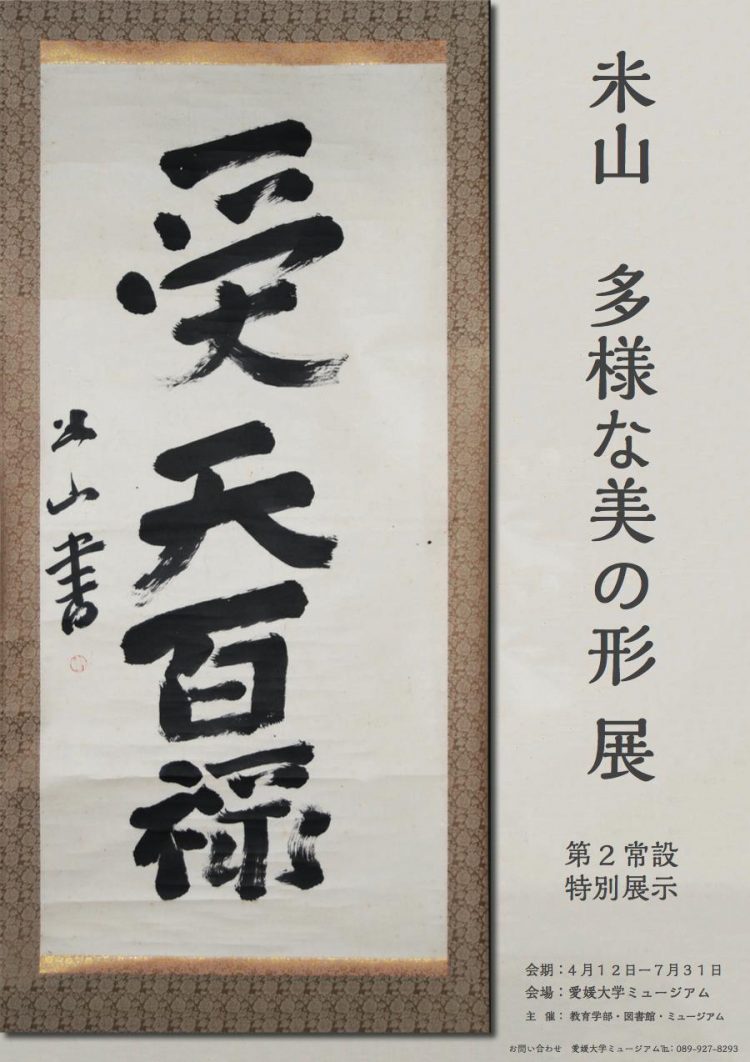 米山 多様な美の形 展
受天百禄
米山書
第2常設
特別展示
会期：4月12日ー7月31日
会場：愛媛大学ミュージアム
主 催：教育学部・図書館・ミュージアム
お問い合わせ 愛媛大学ミュージアム℡：089-927-8293